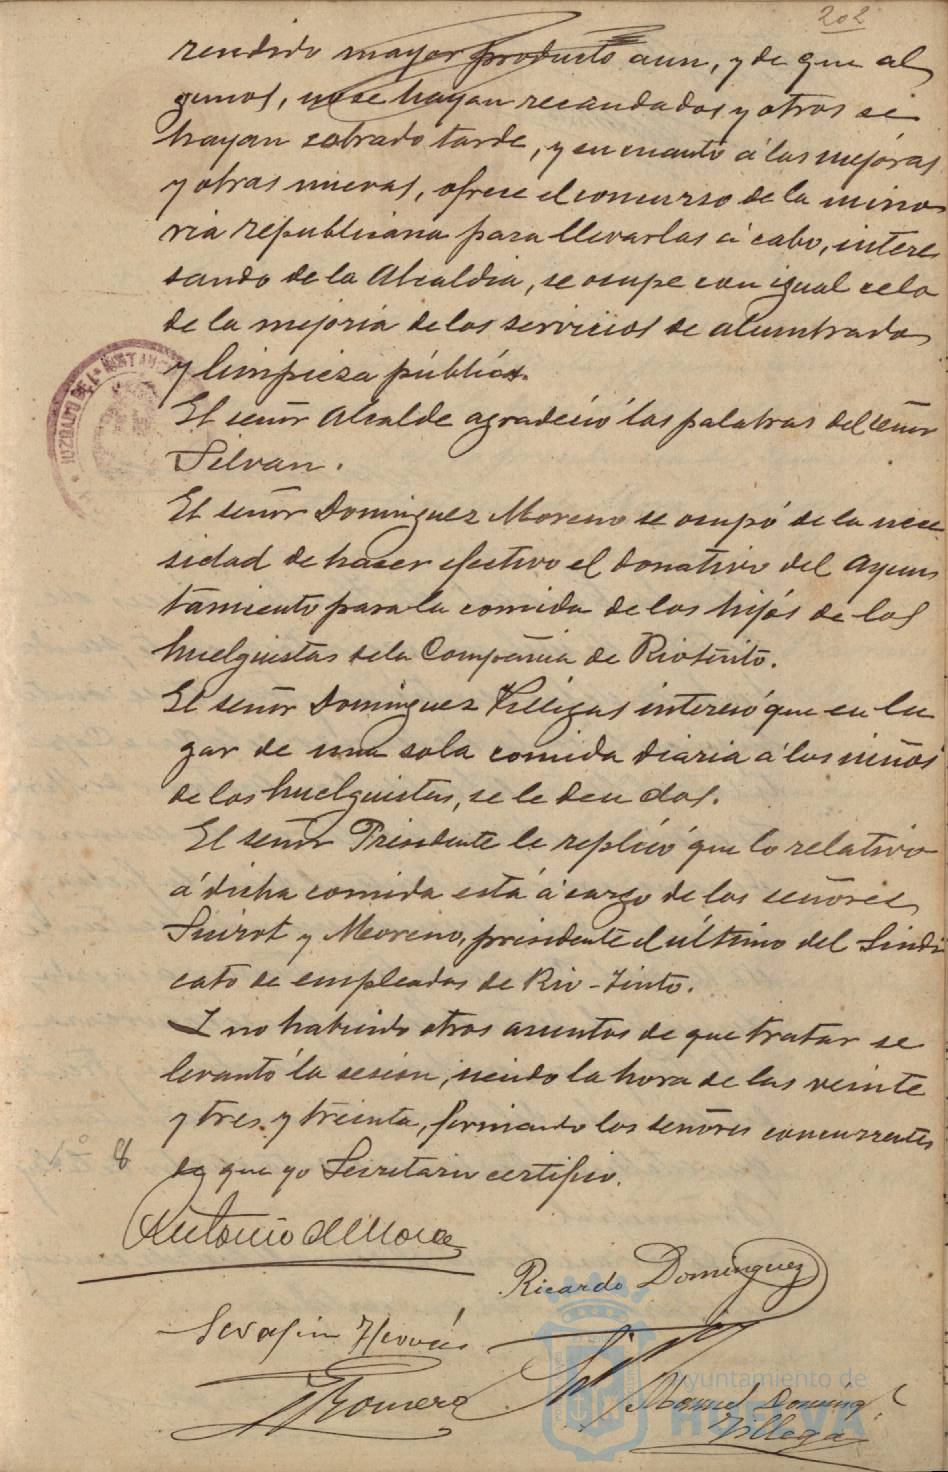 202
rendido mayor producto aun, y de que al
gunos, no se hayan recaudados y otros se
hayan cobrado tarde, y en cuanto á las mejoras
y obras nuevas, ofrece el concurso de la mino
ria republicana para llevarlas á cabo, intere
sando de la Alcaldia, se ocupe con igual celo
de la mejoria de los servicios de alumbrado
y limpieza pública.
El señor Alcalde agradeció las palabras del señor
Silvan.
El señor Dominguez Moreno se ocupó de la nece
sidad de hacer efectivo el donativo del Ayun
tamiento para la comida de los hijos de los
huelguistas de la Compañia de Riotinto.
El señor Dominguez Villegas interesó que en lu
gar de una sola comida diaria á los niños
de los huelguistas, se le den dos.
El señor Presidente le replicó que lo relativo
á dicha comida está á cargo de los señores
Suirot y Moreno, presidente el último del Sindi
cato de empleados de Rio-Tinto.
Y no habiendo otros asuntos de que tratar se
levantó la sesion, siendo la hora de las veinte
y tres y treinta, firmando los señores concurrentes
de que yo Secretario certifico.
8
Antonio de Mora
Ricardo Dominguez
Serafin
Romero
Manuel Doming
Villegas
JUZGADO DE 1ª INSTAN
Ayuntamiento de
HUELVA